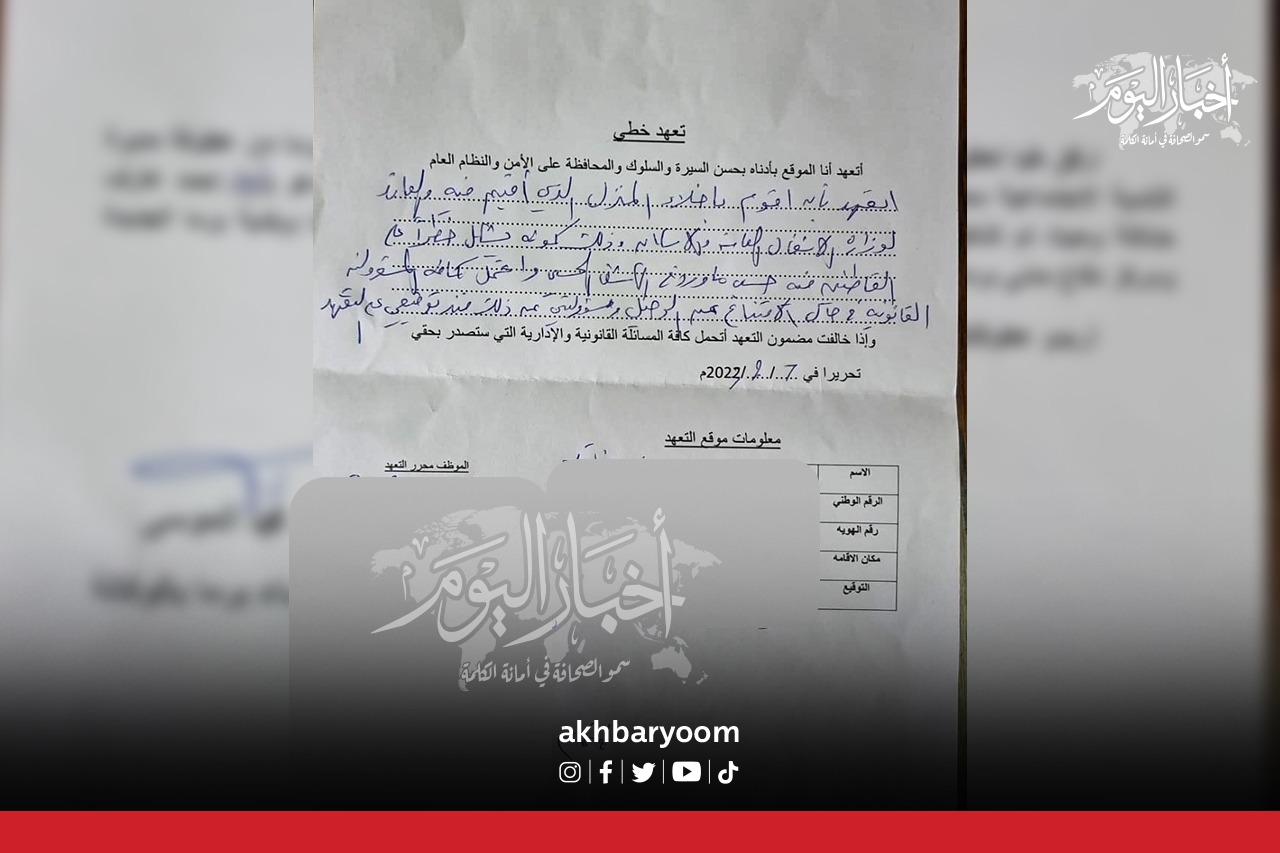 أخبار اليوم
سمو الصحافة في أمانة الكلمة
تعهد خطي
أتعهد أنا الموقع بأدناه بحسن السيرة والسلوك والمحافظة على الأمن والنظام العام
اتعهد بأن اقوم باخلاء المنزل الذي أقيم فيه والعائد
لوزارة الاشغال العامة والاسكان وذلك كونه يشكل خطراً على
القاطنين فيه حسب ما ورد في الكشف الحسي واتحمل كافة المسؤولية
القانونية في حال الامتناع عن وذلك منذ توقيعي على التعهد
وإذا خالفت مضمون التعهد أتحمل كافة المسائلة القانونية والإدارية التي ستصدر بحقي
تحريرا في 7/2/2022م
معلومات موقع التعهد
الموظف محرر التعهد
الاسم
الرقم الوطني
رقم الهويه
مكان الاقامه
التوقيع
أخبار اليوم
سمو الصحافة في أمانة الكلمة
akhbaryoom